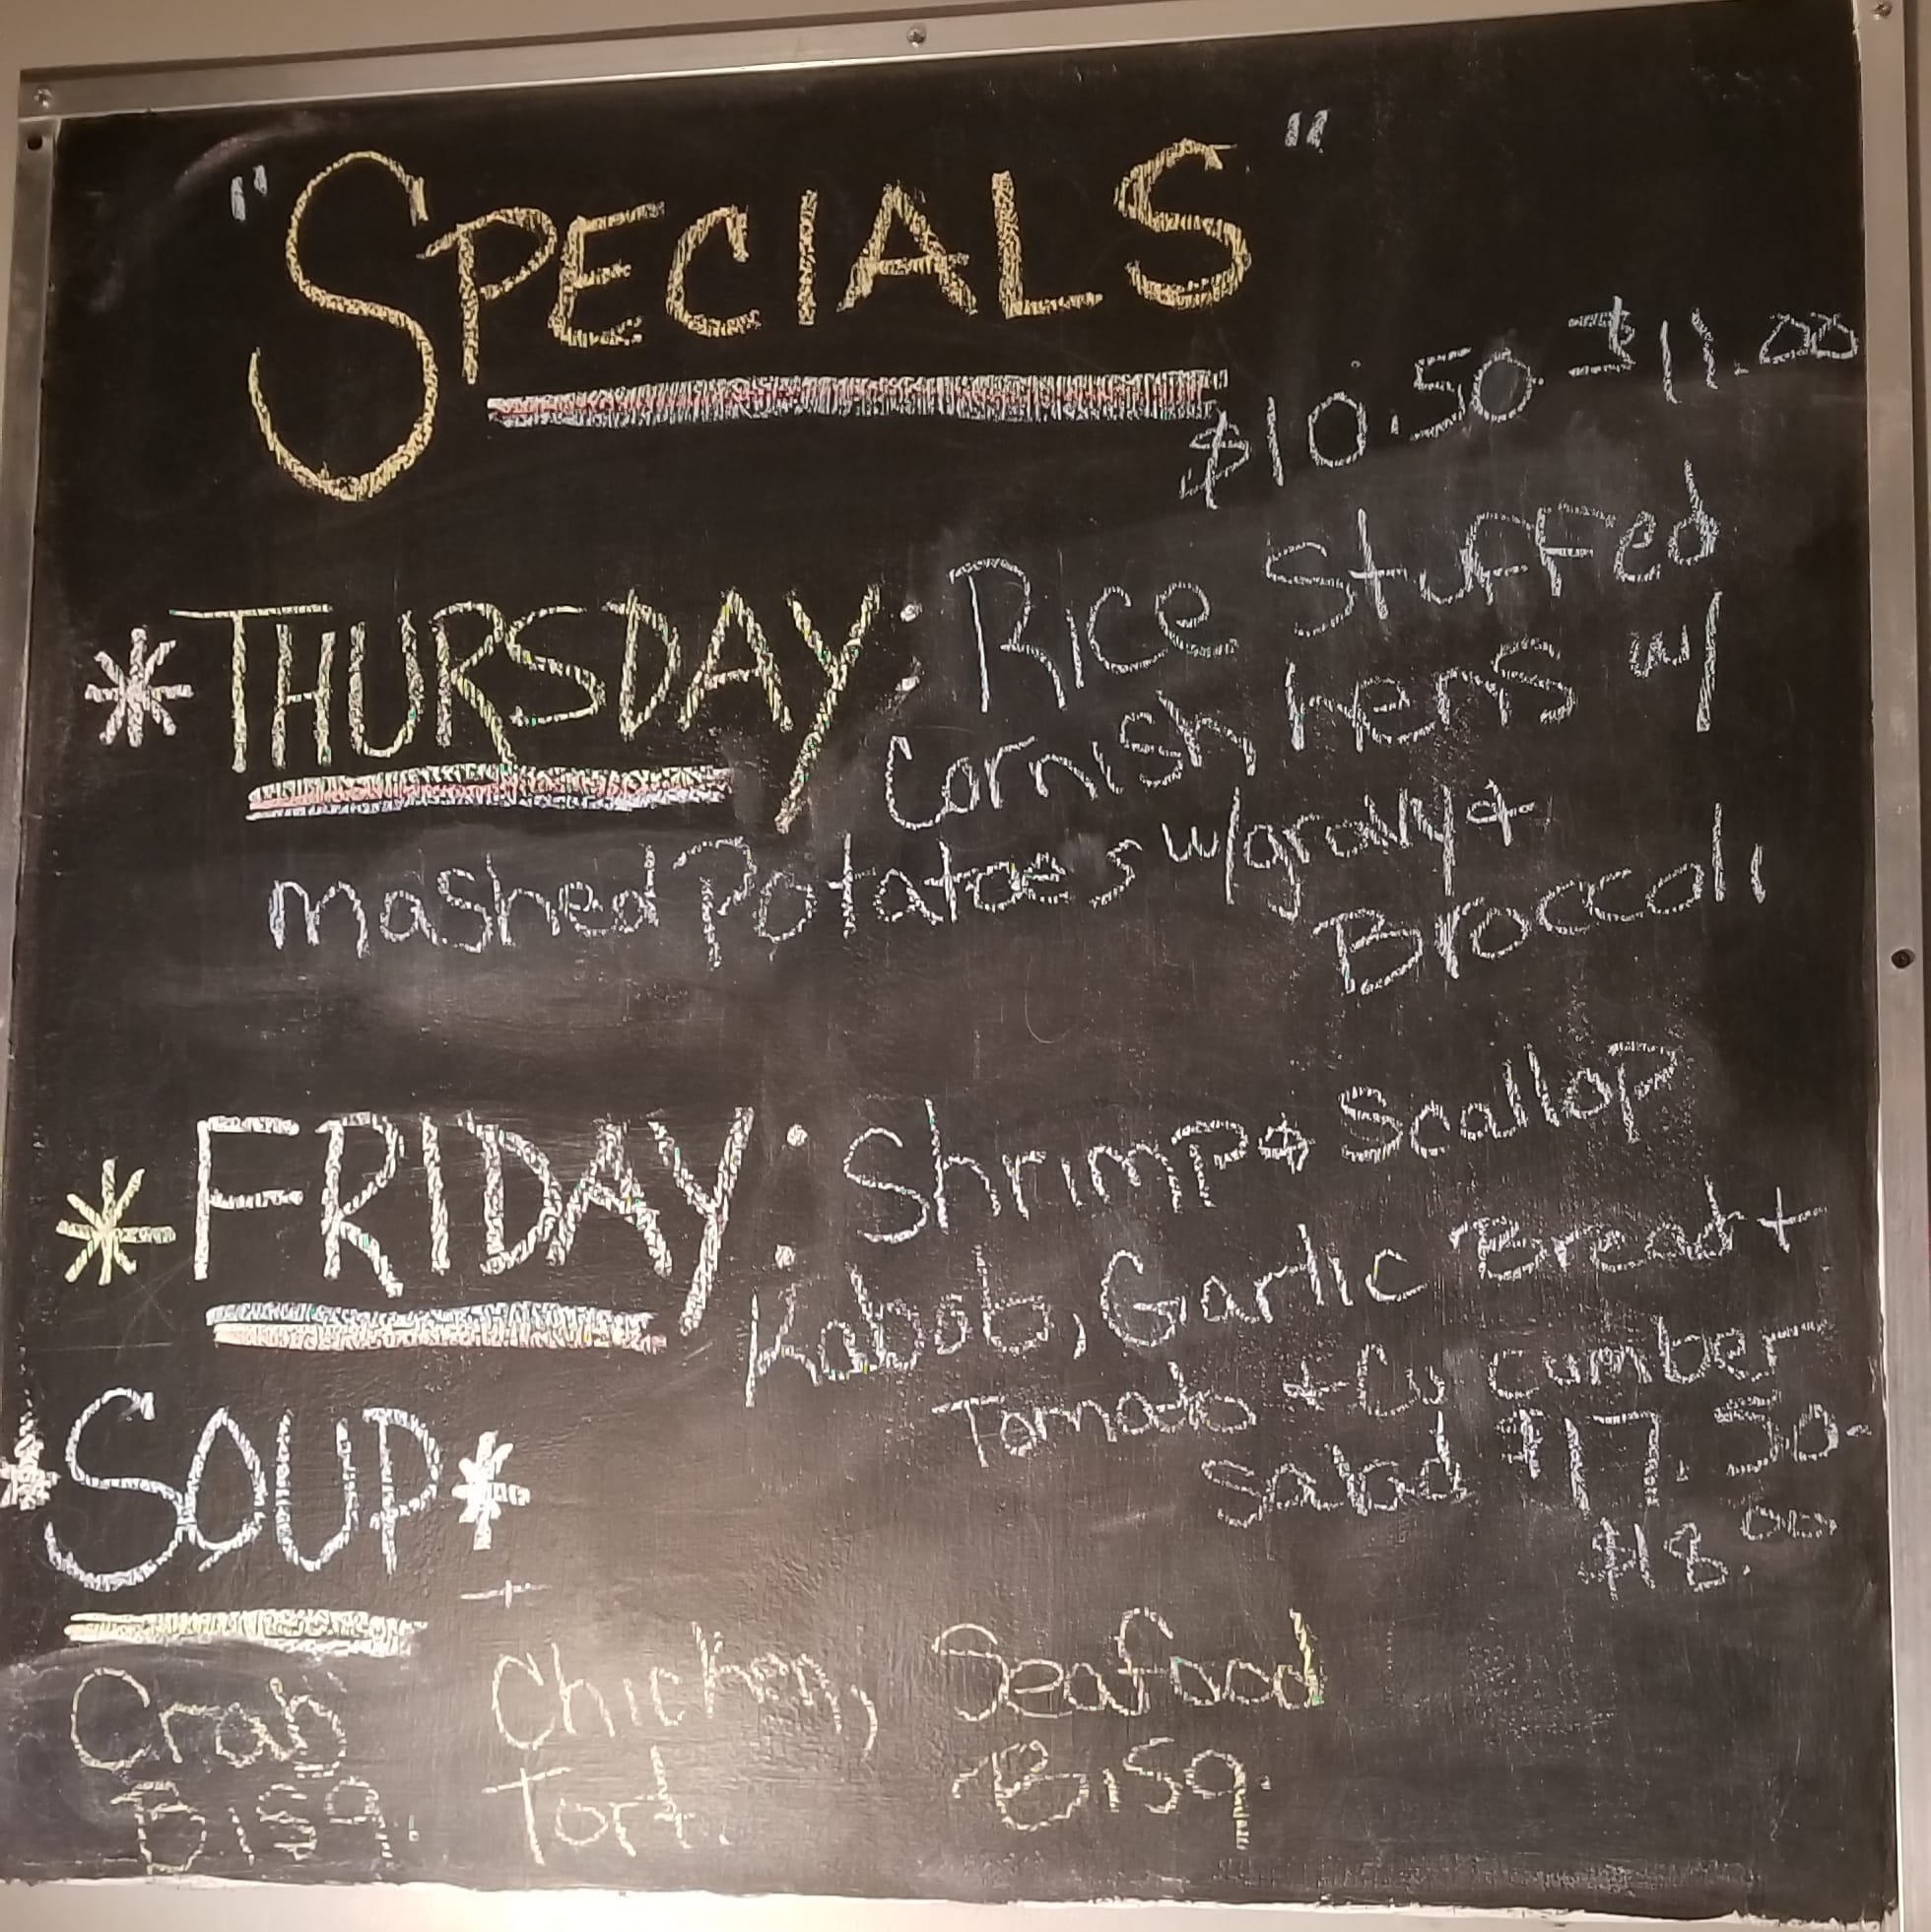 "SPECIALS"
$10.50 - $11.00
* THURSDAY: Rice Stuffed
Cornish hens w/
mashed Potatoes w/gravy +
Broccoli
* FRIDAY: Shrimp & Scallop
Kabob, Garlic Bread +
Tomato + Cucumber
salad $17.50-
$18.00
* SOUP *
Crab Chicken, Seafood
Bisq. Tort. Bisq.